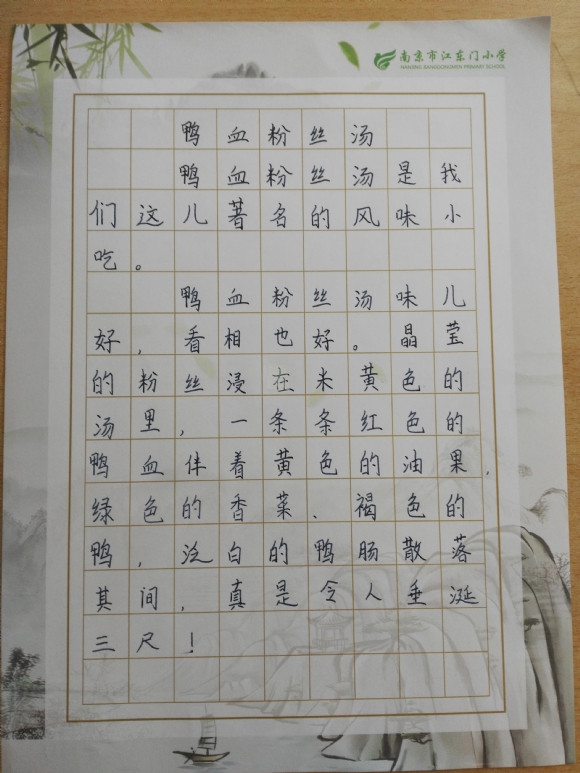 南京市江东门小学
NANJING JIANGDONGMEN PRIMARY SCHOOL
鸭血粉丝汤
鸭血粉丝汤是我
们这儿著名的风味小
吃。
鸭血粉丝汤味儿
好，看相也好。晶莹
的粉丝浸在米黄色的
汤里，一条条红色的
鸭血伴着黄色的油果，
绿色的香菜、褐色的
鸭，泛白的鸭肠散落
其间，真是令人垂涎
三尺！